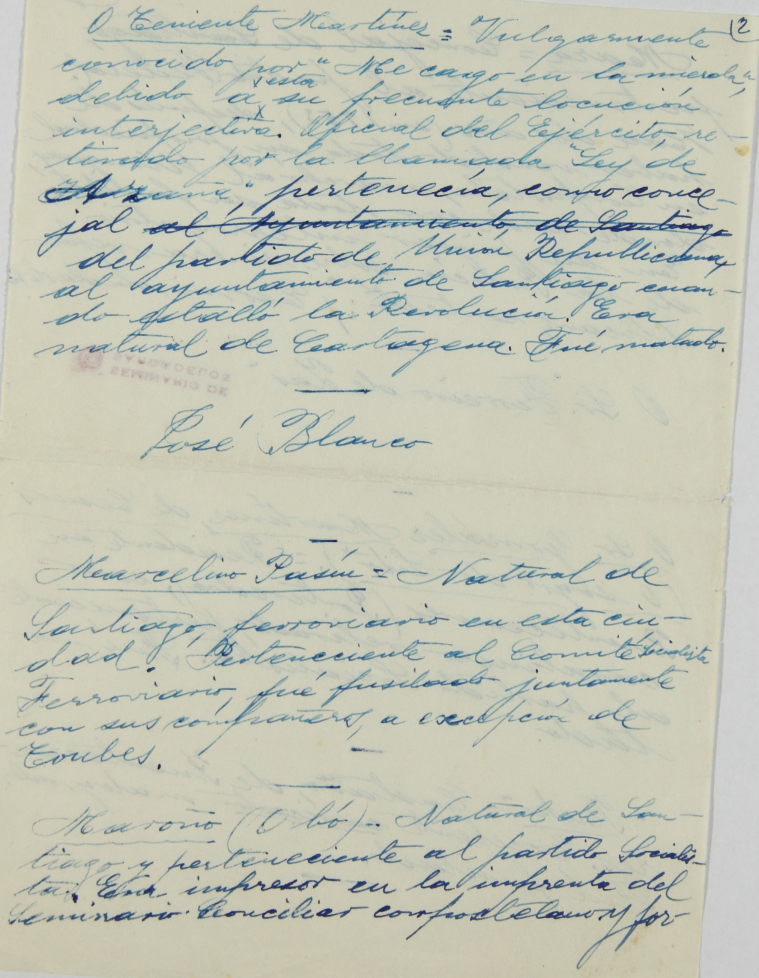 2
O Teniente Martínez = Vulgarmente
conocido por "Me cago en la mierda",
debido a esta su frecuente locución
interjectiva. Oficial del Ejército, re-
tirado por la llamada "Ley de
Azaña", pertenecía, como conce-
jal al Ayuntamiento de Santiago
del partido de Unión Republicana,
al ayuntamiento de Santiago cuan-
do estalló la Revolución. Era
natural de Cartagena. Fué matado.
SEMINARIO DE
SARGADELOS
José Blanco
Marcelino Pasín = Natural de
Santiago, ferroviario en esta ciu-
dad. Pertenecciente al Comité Socialista
Ferroviario, fué fusilado juntamente
con sus compañeros, a excepción de
Toubes.
Maroño (O bó) - Natural de San-
tiago y perteneciente al partido Socialis-
ta. Era impresor en la imprenta del
Seminario Conciliar compostelano y for-